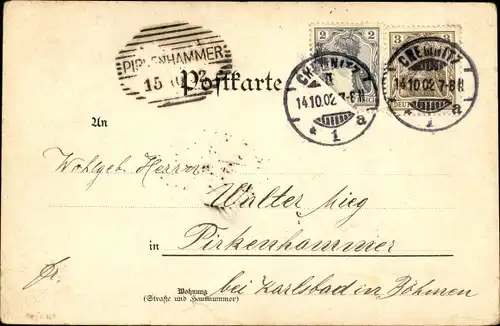 PIRKENHAMMER
15 10 02
Postkarte
2
3
CHEMNITZ
14.10.02 7-8 N
1 a
CHEMNITZ
14.10.02 7-8 N
1 a
An
Wohlgeb. Herrn
Walter Mieg
in Pirkenhammer
bei Karlsbad in Böhmen
Wohnung
(Straße und Hausnummer)